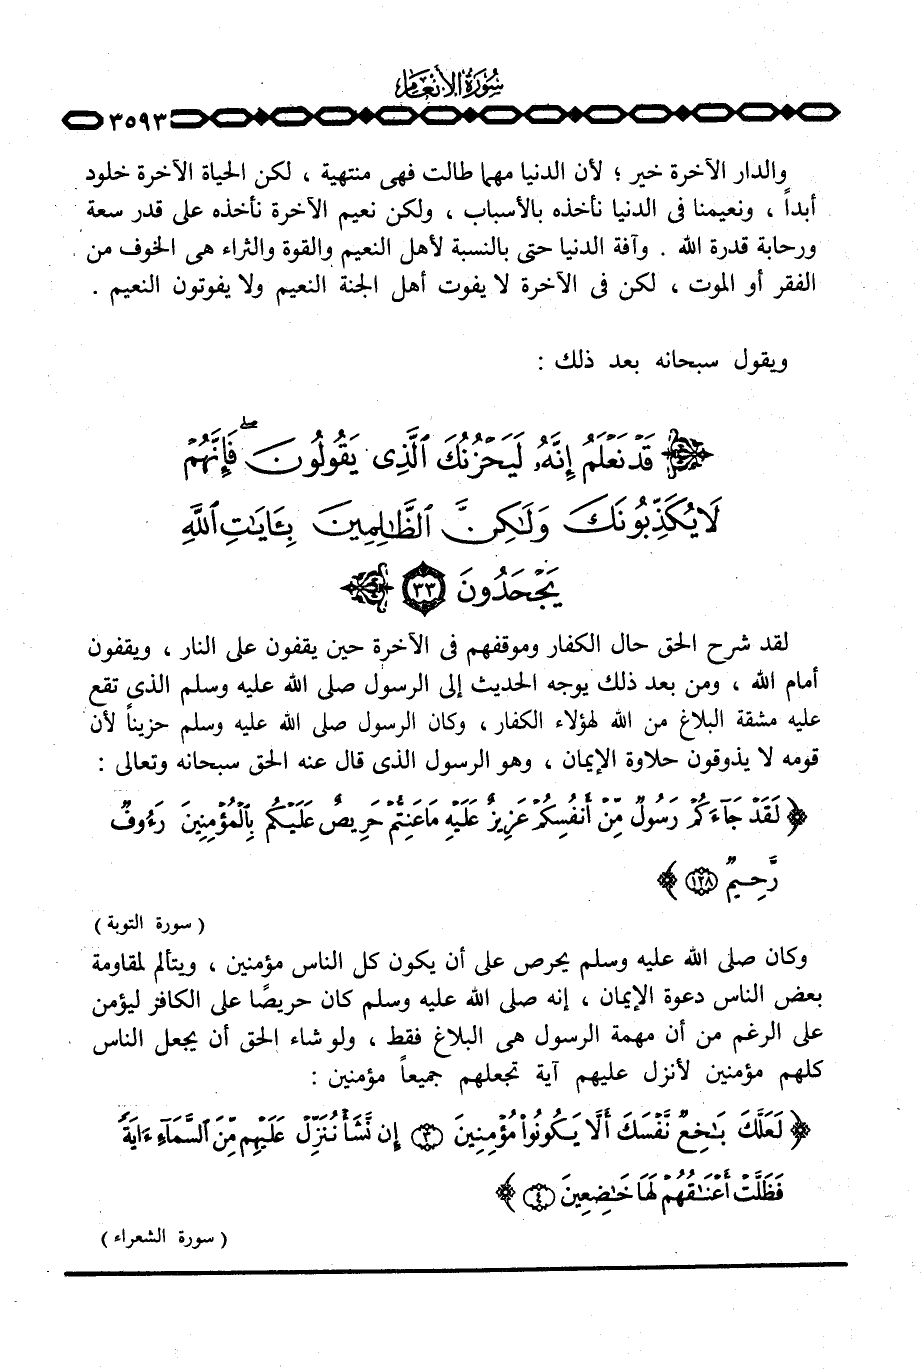 سورة الأنعام
٣٥٩٣
والدار الآخرة خير ؛ لأن الدنيا مهما طالت فهى منتهية ، لكن الحياة الآخرة خلود
أبداً ، ونعيمنا فى الدنيا نأخذه بالأسباب ، ولكن نعيم الآخرة نأخذه على قدر سعة
ورحابة قدرة الله . وآفة الدنيا حتى بالنسبة لأهل النعيم والقوة والثراء هى الخوف من
الفقر أو الموت ، لكن فى الآخرة لا يفوت أهل الجنة النعيم ولا يفوتون النعيم .
ويقول سبحانه بعد ذلك :
قَدْ نَعْلَمُ إِنَّهُۥ لَيَحْزُنُكَ ٱلَّذِى يَقُولُونَ ۖ فَإِنَّهُمْ
لَا يُكَذِّبُونَكَ وَلَٰكِنَّ ٱلظَّٰلِمِينَ بِـَٔايَٰتِ ٱللَّهِ
يَجْحَدُونَ ٣٣
لقد شرح الحق حال الكفار وموقفهم فى الآخرة حين يقفون على النار ، ويقفون
أمام الله ، ومن بعد ذلك يوجه الحديث إلى الرسول صلى الله عليه وسلم الذى تقع
عليه مشقة البلاغ من الله لهؤلاء الكفار ، وكان الرسول صلى الله عليه وسلم حزيناً لأن
قومه لا يذوقون حلاوة الإيمان ، وهو الرسول الذى قال عنه الحق سبحانه وتعالى :
﴿ لَقَدْ جَآءَكُمْ رَسُولٌ مِّنْ أَنفُسِكُمْ عَزِيزٌ عَلَيْهِ مَا عَنِتُّمْ حَرِيصٌ عَلَيْكُم بِٱلْمُؤْمِنِينَ رَءُوفٌ
رَّحِيمٌ ١٢٨ ﴾
( سورة التوبة )
وكان صلى الله عليه وسلم يحرص على أن يكون كل الناس مؤمنين ، ويتألم لمقاومة
بعض الناس دعوة الإيمان ، إنه صلى الله عليه وسلم كان حريصًا على الكافر ليؤمن
على الرغم من أن مهمة الرسول هى البلاغ فقط ، ولو شاء الحق أن يجعل الناس
كلهم مؤمنين لأنزل عليهم آية تجعلهم جميعاً مؤمنين :
﴿ لَعَلَّكَ بَٰخِعٌ نَّفْسَكَ أَلَّا يَكُونُوا۟ مُؤْمِنِينَ ٣ إِن نَّشَأْ نُنَزِّلْ عَلَيْهِم مِّنَ ٱلسَّمَآءِ ءَايَةً
فَظَلَّتْ أَعْنَٰقُهُمْ لَهَا خَٰضِعِينَ ٤ ﴾
( سورة الشعراء )